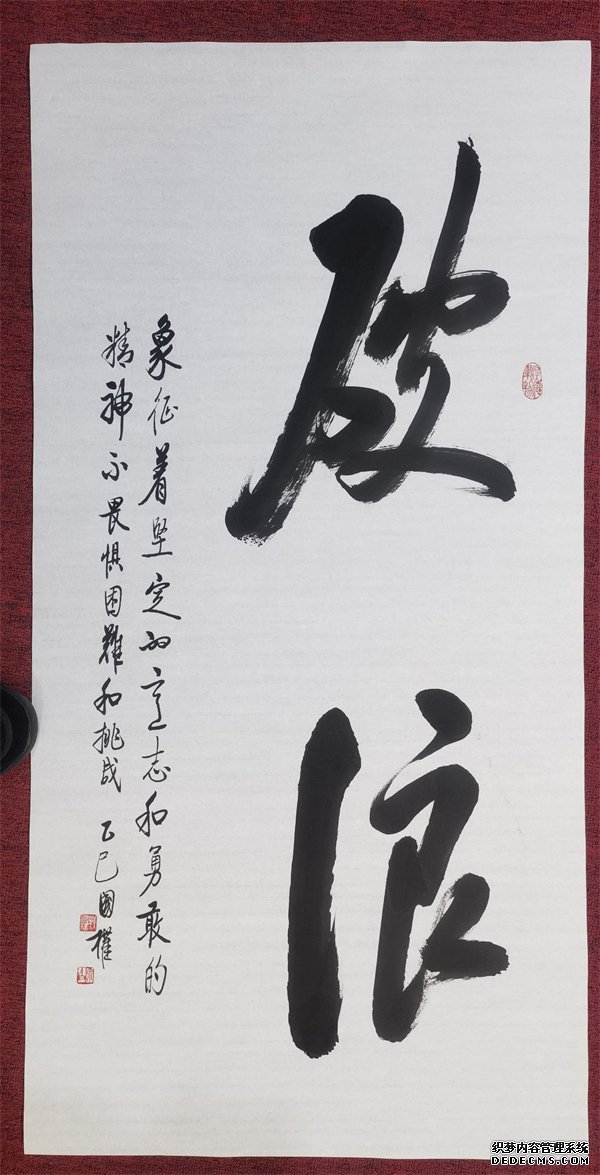 破浪
象征着坚定的意志和勇敢的
精神不畏惧困难和挑战 乙巳國權
织梦内容管理系统
DEDECMS.COM